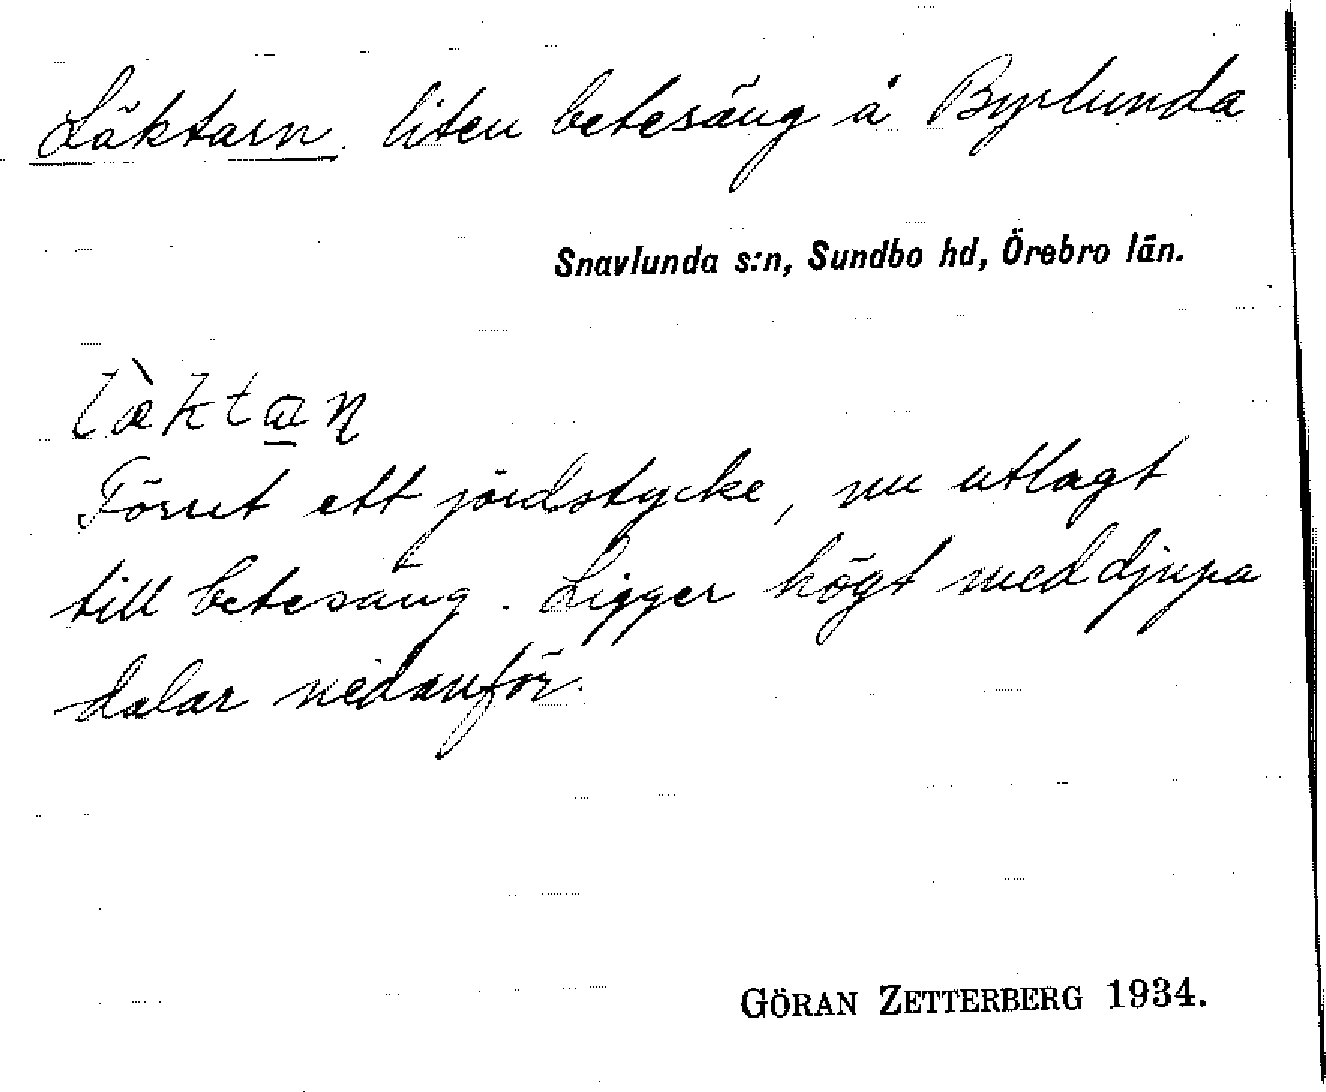 Läktarn. liten betesäng å Byrlunda
Snavlunda s:n, Sundbo hd, Örebro län.
læ̀kta̲ɳ
Förut ett jordstycke, nu utlagt
till betesäng. Ligger högt med djupa
dalar nedanför.
GÖRAN ZETTERBERG 1934.